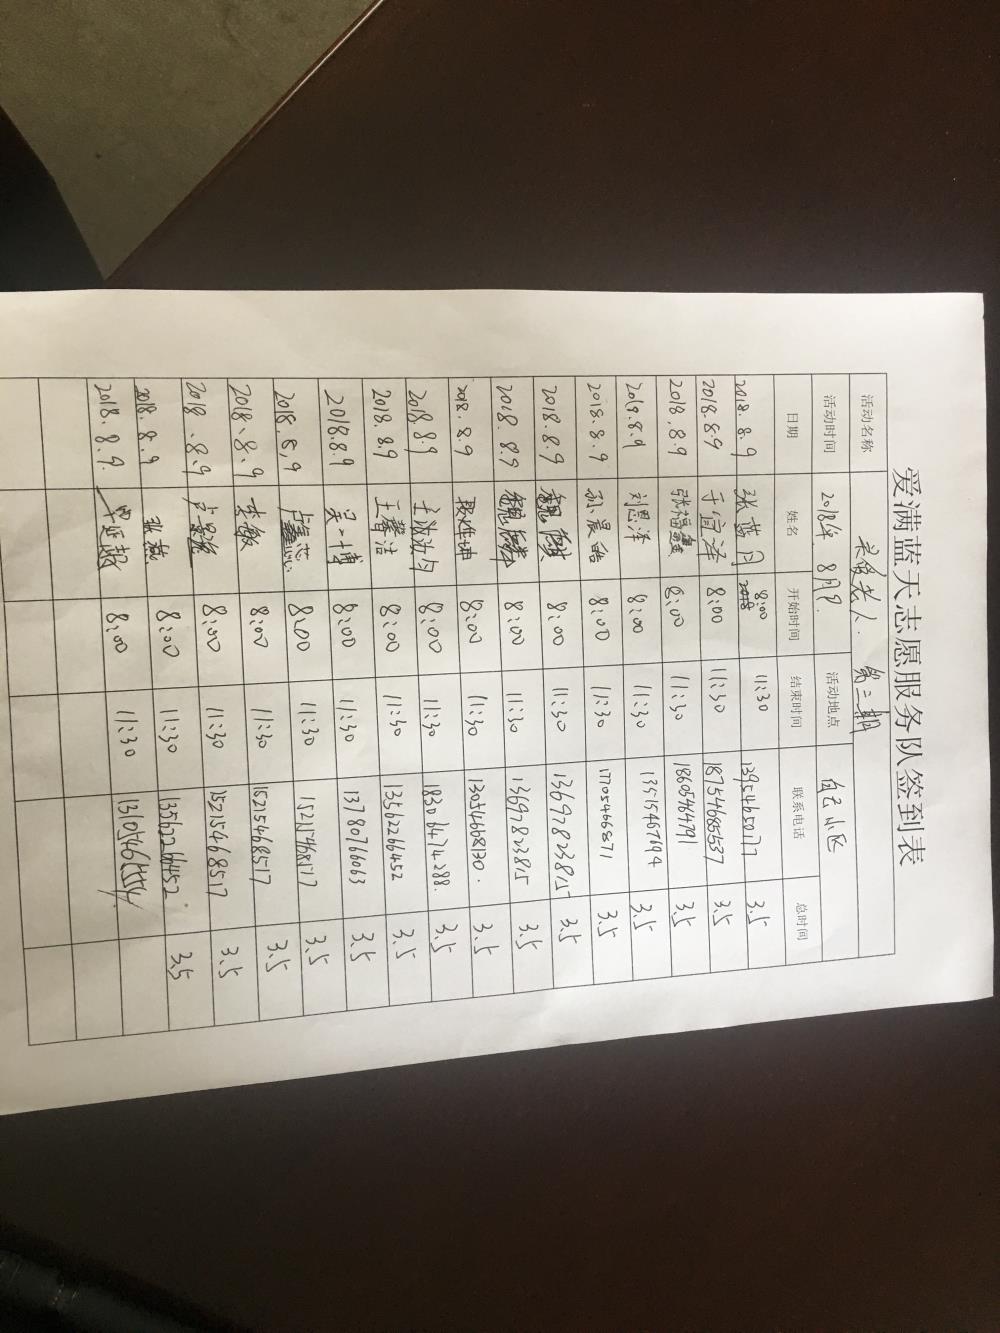 爱满蓝天志愿服务队签到表
活动名称 关爱老人. 第三期
活动时间 2018年 8月9. 活动地点 自己小区
日期 姓名 开始时间 结束时间 联系电话 总时间
2018.8.9 张蓝月 8:00 11:30 13954650777 3.5
2018.8.9 于宜泽 8:00 11:30 18754685537 3.5
2018.8.9 张福 8:00 11:30 18605464791 3.5
2018.8.9 刘思泽 8:00 11:30 13515467694 3.5
2018.8.9 孙晨皓 8:00 11:30 17705466671 3.5
2018.8.9 魏 8:00 11:30 13697823815 3.5
2018.8.9 魏 8:00 11:30 13697823815 3.5
2018.8.9 8:00 11:30 13054668130. 3.5
2018.8.9 8:00 11:30 18306474288. 3.5
2018.8.9 王馨洁 8:00 11:30 13562266452 3.5
2018.8.9 吴一博 8:00 11:30 13780766063 3.5
2018.8.9 卢鑫蕊 8:00 11:30 15215468517 3.5
2018、8、9 李敏 8:00 11:30 15215468517 3.5
2018、8.9 卢 8:00 11:30 15215468517 3.5
2018.8.9 张燕 8:00 11:30 13562266452 3.5
2018.8.9. 8:00 11:30